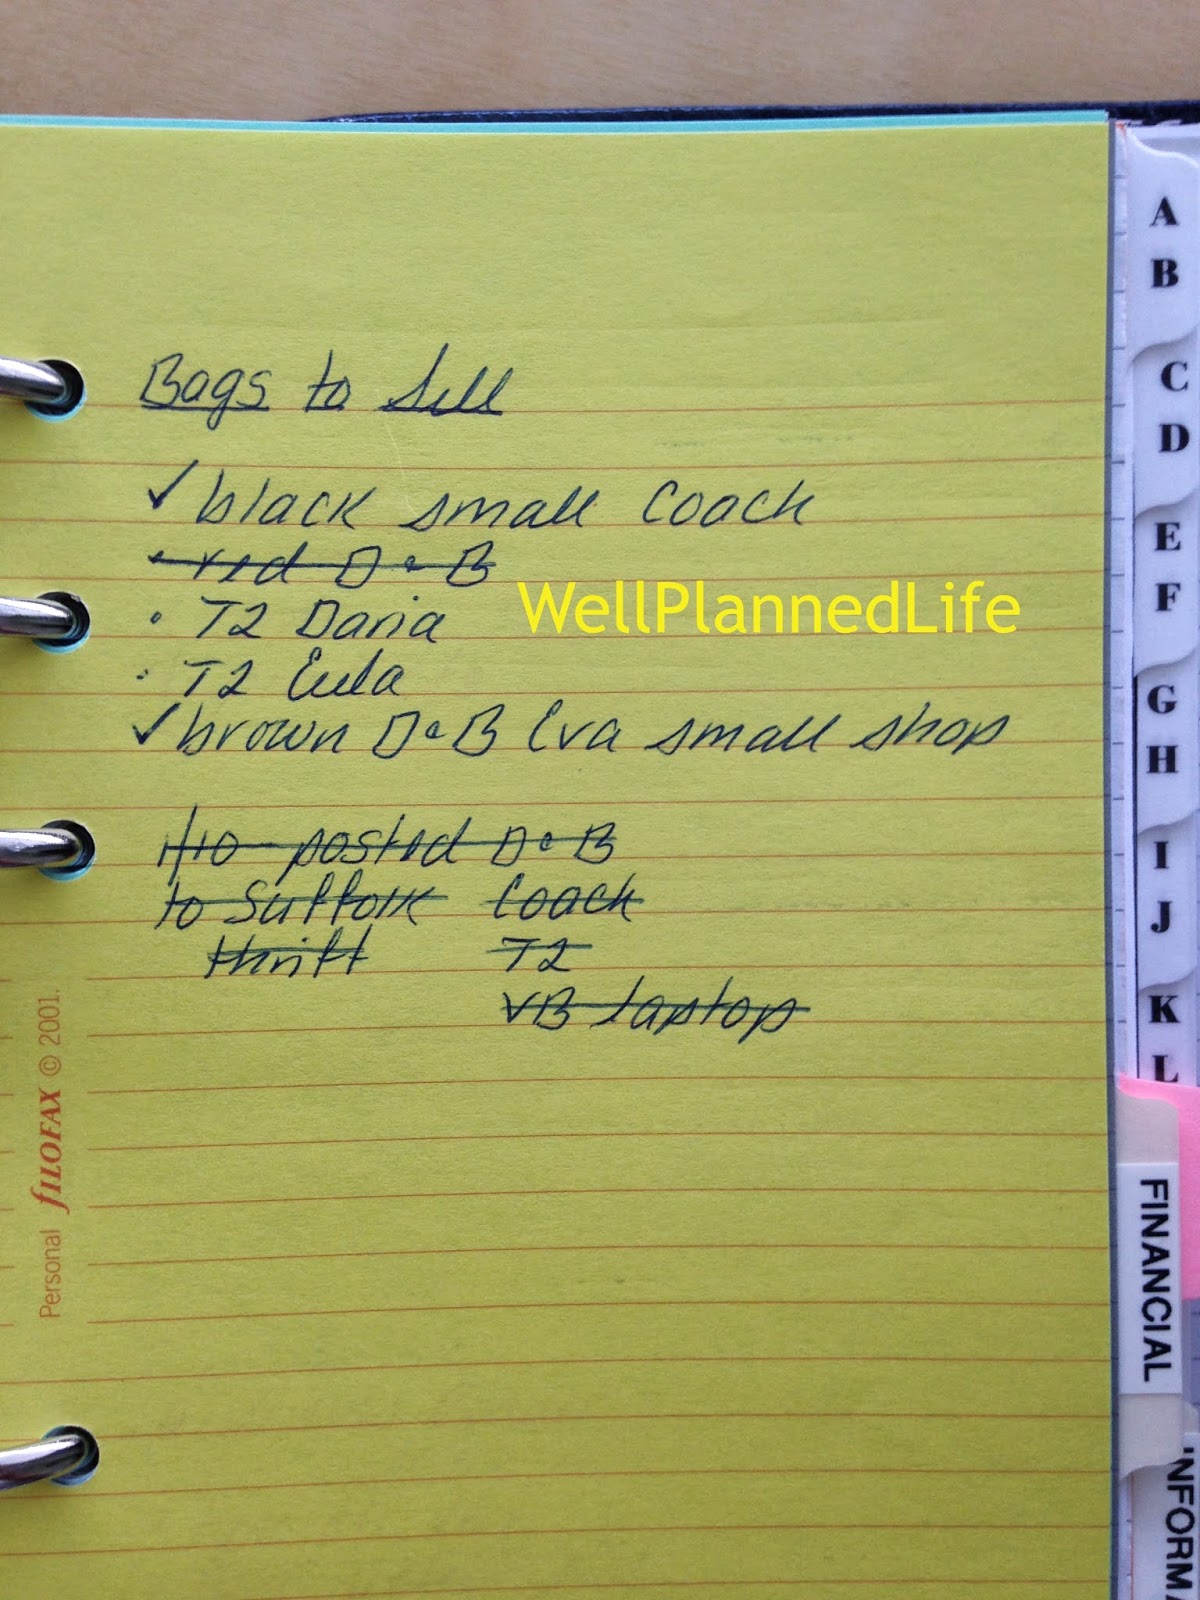 Bags to Sell
✓ black small Coach
• red D&B
• T2 Daria
• T2 Eula
✓ brown D&B Eva small shop
1/10 posted D&B
to Suffolk Coach
thrift T2
VB laptop
WellPlannedLife
Personal fILOFAX © 2001.
A
B
C
D
E
F
G
H
I
J
K
L
FINANCIAL
INFORMA